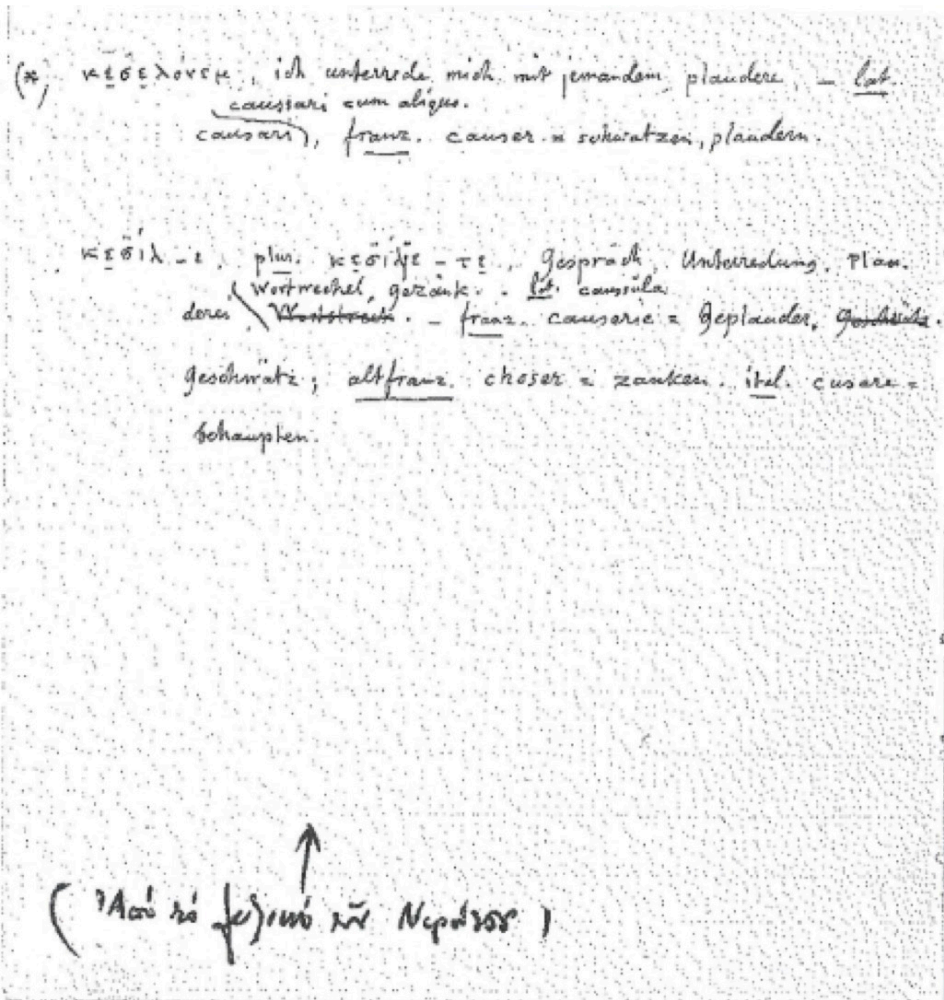 (*) κε̱σε̱λόνεμ, ich unterrede mich mit jemandem, plaudere, – lat
caussari cum aliquo.
causari), franz. causer = schwatzen, plaudern.
κε̱σίλ-ι, plur. κε̱σίλjε-τε̱, Gespräch, Unterredung, Plau-
Wortwechsel, gezänk. – lat. caussula
derei, – franz. causerie = Geplauder,
Geschwätz; altfranz. choser = zanken. ital. cusare =
behaupten.
↑
(Ἀπό τό λεξικό τοῦ)